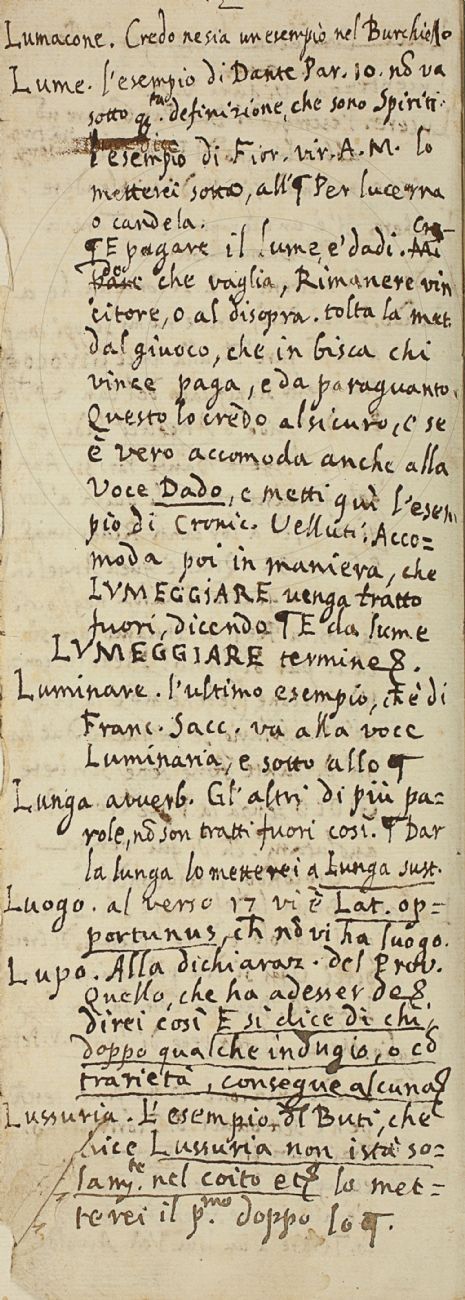 Lumacone. Credo ne sia un esempio nel Burchiello
Lume. l'esempio di Dante Par. 10. nō va
sotto q.ta definizione, che sono Spiriti.
l'esempio di Fior. vir. A. M. lo
metterei sotto, all' ¶ Per lucerna
o candela.
¶ E pagare il lume, e' dadi. Cre-
do che vaglia, Rimanere vin
citore, o al disopra. tolta la met.
dal giuoco, che in bisca chi
vince paga, e da paraguanto.
Questo lo credo al sicuro, e se
è vero accomoda anche alla
voce Dado, e metti quì l'esem
pio di Cronic. Velluti. Acco=
moda poi in maniera, che
LVMEGGIARE venga tratto
fuori, dicendo ¶ E da lume
LVMEGGIARE termine &.
Luminare. l'ultimo esempio, ch'è di
Franc. Sacc. va alla voce
Luminaria, e sotto allo ¶
Lunga avverb. Gl'altri di più pa=
role, nō son tratti fuori così. ¶ Dar
la lunga lo metterei a Lunga sust.
Luogo. al verso 17 vi è Lat. op=
portunus, ch̄ nō vi ha luogo.
Lupo. Alla dichiaraz. del Prov.
Quello, che ha adesser de &.
direi così E si dice di chi,
doppo qualche indugio, o cō
trarietà, consegue alcuna &
Lussuria. L'esempio, dl Buti, che
dice Lussuria non istà so=
lam.te nel coito et & lo met=
terei il p.mo doppo lo ¶.